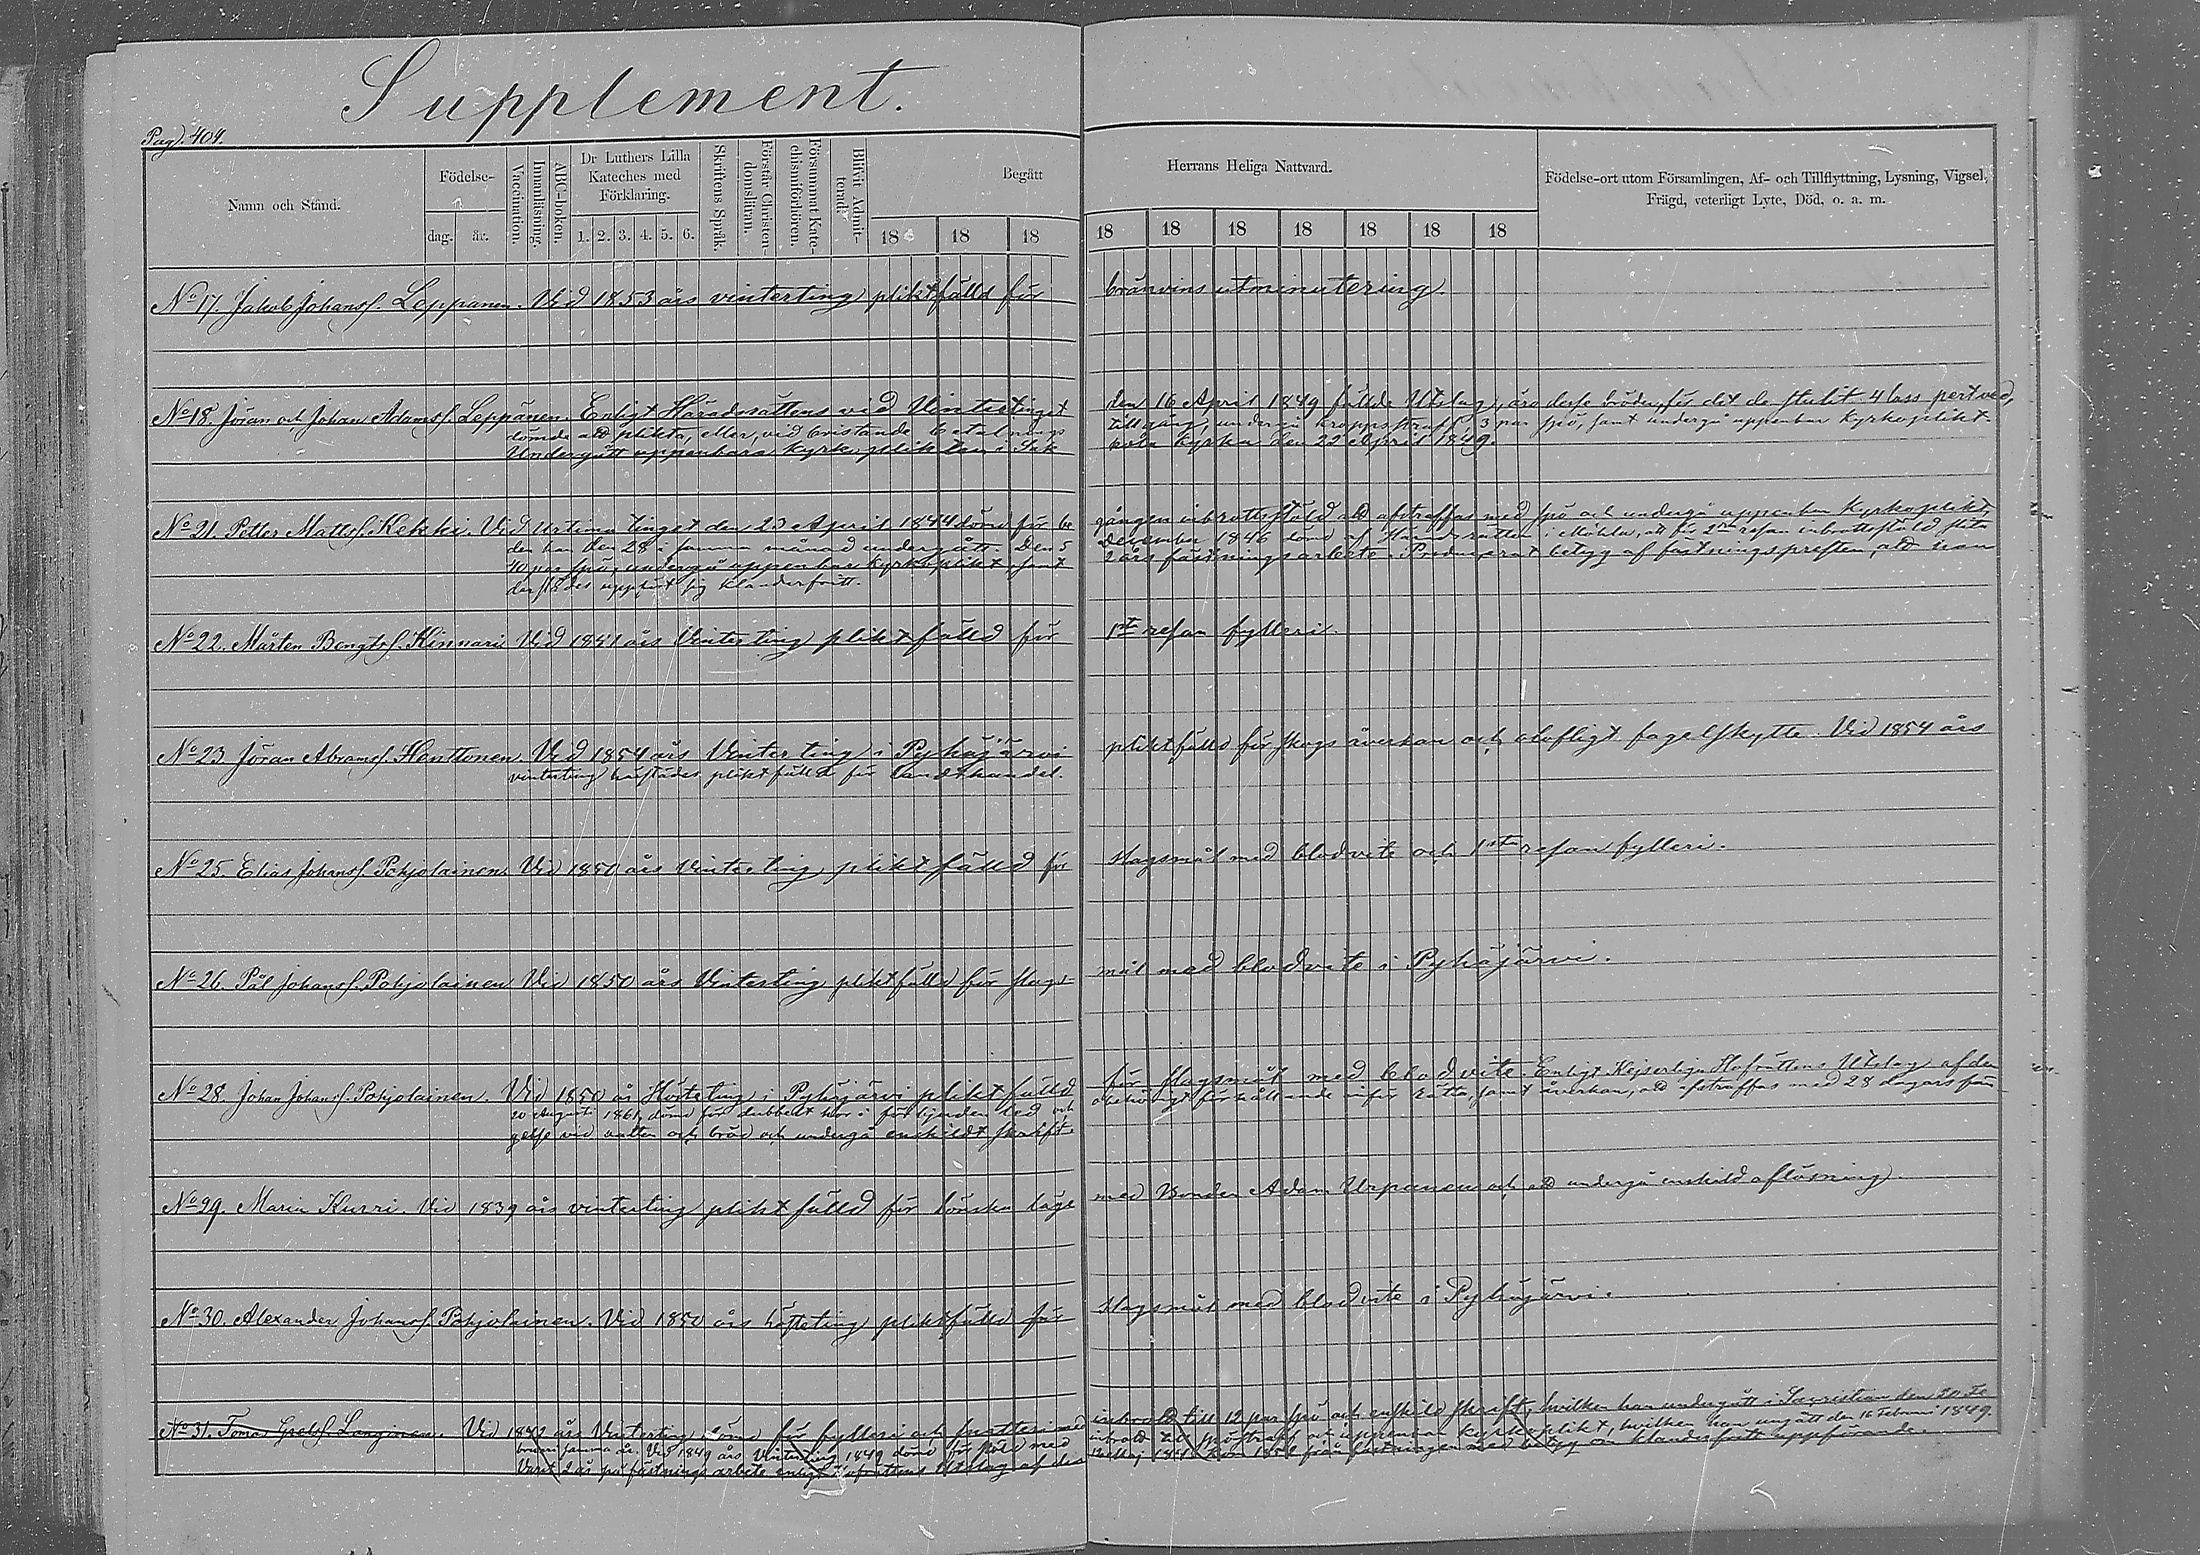 Supplement.
Pag. 404.
Namn och Stånd.
Födelse-
dag.
år.
Vaccination.
Innanläsning.
ABC-boken.
Dr Luthers Lilla
Kateches med
Förklaring.
1. 2. 3. 4. 5. 6.
Skriftens Språk.
Förstår Christen-
domsläran.
Försummat Kate-
chismiförhören.
Blifvit Admit-
terad:
Begått
Herrans Heliga Nattvard.
18 18 18 18 18 18 18 18 18 18
Födelse-ort utom Församlingen, Af- och Tillflyttning, Lysning, Vigsel,
Frägd, veterligt Lyte, Död, o. a. m.
No 17. Jakob Johansf. Leppanen. Vid 1853 års vinterting pliktfälld för bränvins utminutering.
No 18. Jöran och Johan Adamsf. Leppänen. Enligt Häradsrättens vid Vintertinget den 16 April 1849 fällde Utslag, äro desse bröder, för det de stulit 4 lass pertved,
dömde att plikta, eller, vid bristande betalnings tillgång, undergå kroppsstraff 3 par spö, samt undergå uppenbar kyrkoplikt.
Undergått uppenbara kyrkoplikten i Sak kola kyrka den 22 April 1849.
No 21. Petter Mattsf. Kekki. Vid Urtima tinget den 23 April 1844 dömd för 1e gången inbrottsstöld att afstraffas med spö och undergå uppenbar kyrkoplikt,
den han den 28 i samma månad undergått. Den 5 December 1846 dömd af Häradsrätten i Mohla, att för 2dra resan inbrottsstöld slita
40 par spö, undergå uppenbar kyrkoplikt samt 2 års fästningsarbete. Producerat betyg af fästningspresten, att han
derstädes uppfört sig klanderfritt.
No 22. Mårten Bengtsf. Kinnari Vid 1841 års Vinterting pliktfälld för 1sta resan fylleri.
No 23. Jöran Abramsf. Henttonen. Vid 1854 års Vinterting i Pyhäjärvi pliktfälld för skogs åverkan och olofligt fogelskytte. Vid 1854 års
vinterting härstädes pliktfälld för landthandel.
No 25. Elias Johansf. Pohjolainen. Vid 1850 års Vinterting pliktfälld för slagsmål med blodvite och 1sta resan fylleri.
No 26. Pål Johansf. Pohjolainen Vid 1850 års Vinterting pliktfälld för slags mål med blodvite i Pyhäjärvi.
No 28. Johan Johansf. Pohjolainen. Vid 1850 års Höstting i Pyhäjärvi pliktfälld för slagsmål med blodvite. Enligt Kejserliga Hofrättens Utslag af den
20 Augusti 1861, dömd för dubbelt hor i förbjuden led och obehörigt förhållande inför rätta, samt åverkan, att afstraffas med 28 dagars fän
gelse vid vatten och bröd och undergå enskildt skrift.
No 29. Maria Kurri. Vid 1839 års vinterting pliktfälld för lönska läge med Bonden Adam Urpanen och att undergå enskild aflösning.
No 30. Alexander Johansf. Pohjolainen. Vid 1850 års höstting pliktfälld för slagsmål med blodvite i Pyhäjärvi.
No 31. Tomas Langinen. Vid års Vinterting dömd för fylleri och snatteri med inbrott till 12 par spö och enskild skrift, hvilken han undergått i Sacristian den 20 Fe
bruari samma år. Vid 1849 års Vinterting 1849 dömd för stöld med inbrott till spöstraff och uppenbar kyrkoplikt, hvilken han undgått den 16 Februari 1849.
Varit 2 år på fästnings arbete enligt Hofrättens Utslag af den från fästningen med betyg om klanderfritt uppförande.